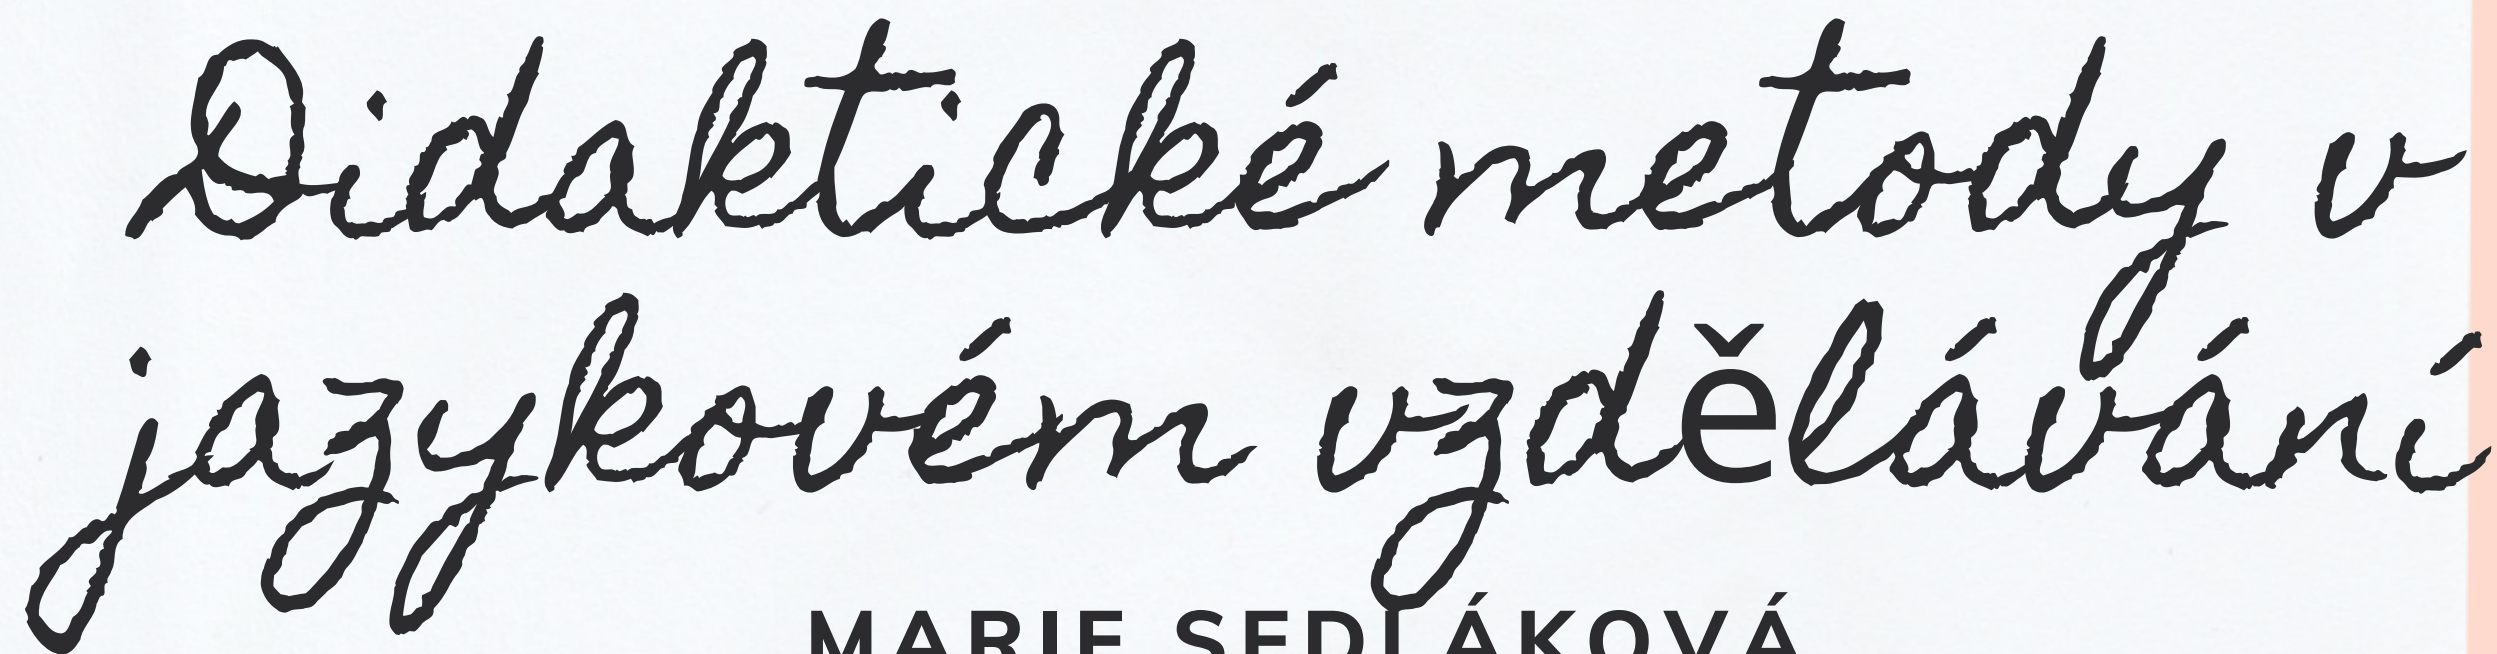 Didaktické metody v
jazykovém vzdělávání
MARIE SEDLÁKOVÁ